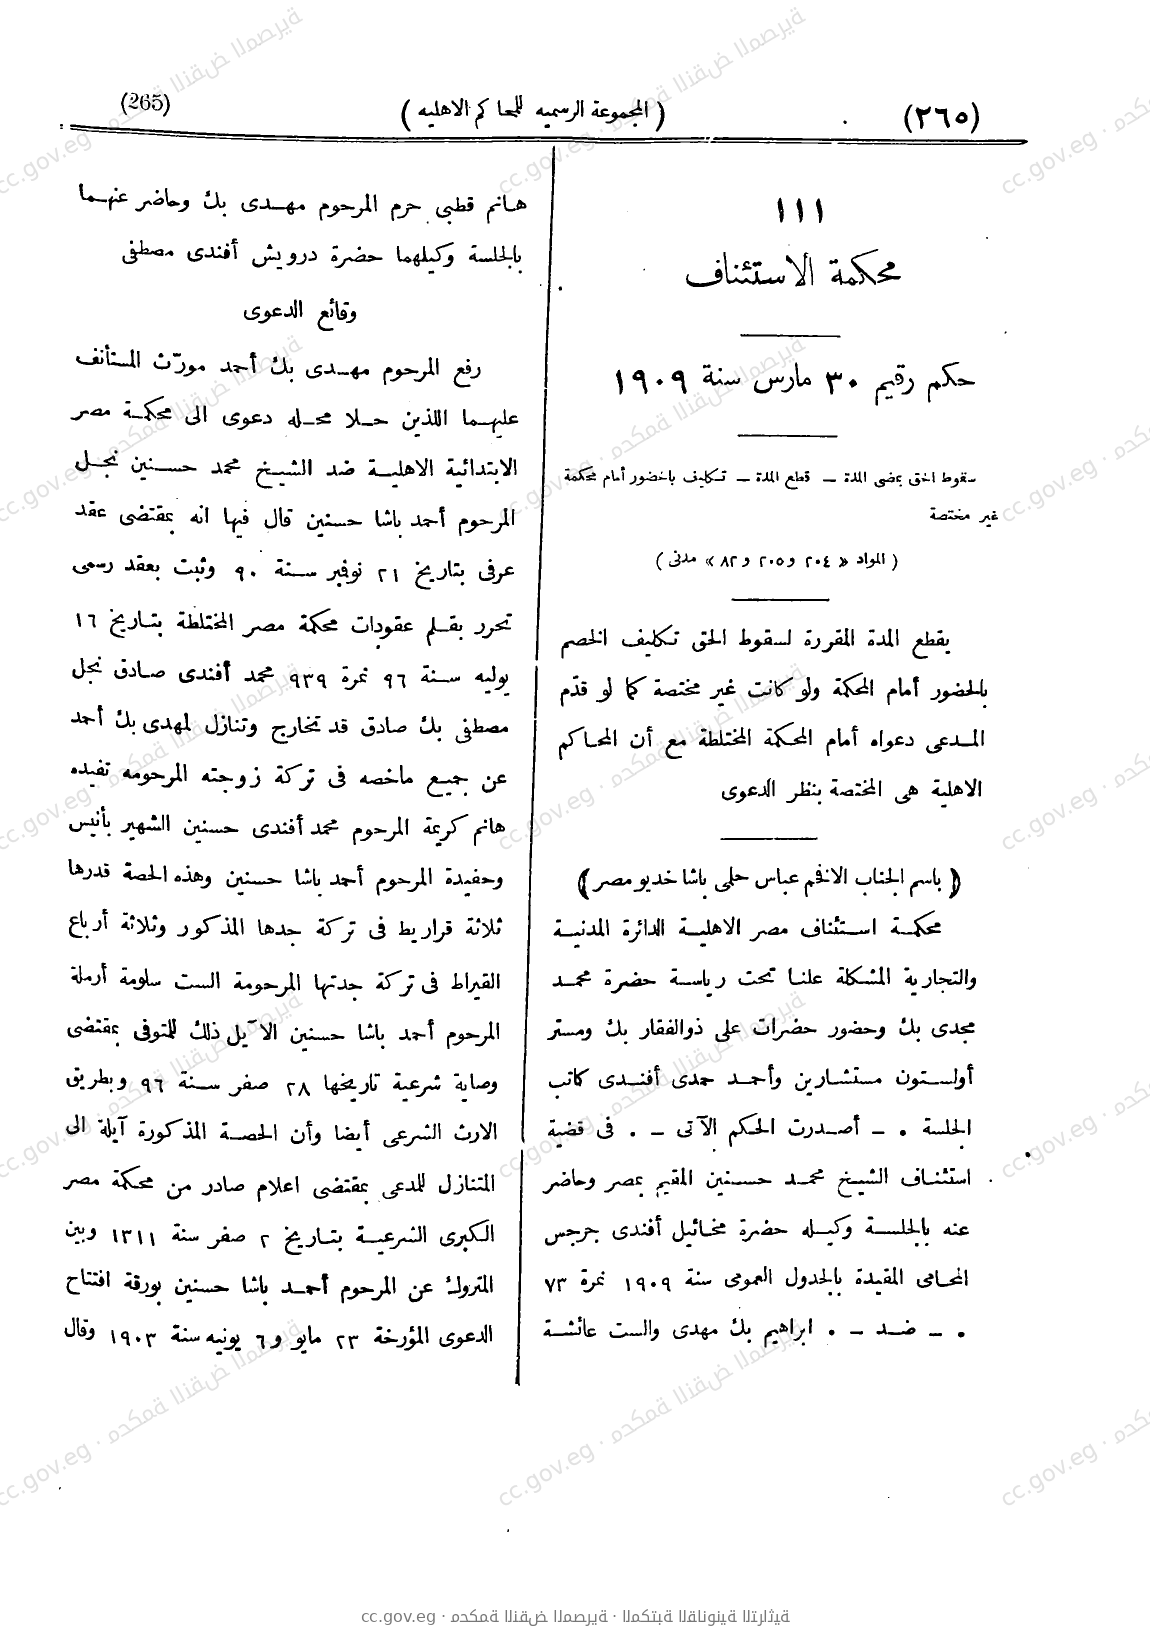 (٢٦٥)
(المجموعة الرسميه للمحاكم الاهليه)
(265)
١١١
محكمة الاستئناف
حكم رقيم ٣٠ مارس سنة ١٩٠٩
سقوط الحق بمضى المدة — قطع المدة — تكليف بالحضور أمام محكمة
غير مختصة
( المواد « ٢٠٤ و ٢٠٥ و ٨٢ » مدنى )
يقطع المدة المقررة لسقوط الحق تكليف الخصم
بالحضور أمام المحكمة ولو كانت غير مختصة كما لو قدّم
المدعى دعواه أمام المحكمة المختلطة مع أن المحاكم
الاهلية هى المختصة بنظر الدعوى
( باسم الجناب الافخم عباس حلمى باشا خديو مصر )
محكمة استئناف مصر الاهلية الدائرة المدنية
والتجارية المشكلة علنا تحت رياسة حضرة محمد
مجدى بك وحضور حضرات على ذوالفقار بك ومستر
أولستون مستشارين وأحمد حمدى أفندى كاتب
الجلسة . — أصدرت الحكم الآتى — . فى قضية
استئناف الشيخ محمد حسنين المقيم بمصر وحاضر
عنه بالجلسة وكيله حضرة مخائيل أفندى جرجس
المحامى المقيدة بالجدول العمومى سنة ١٩٠٩ نمرة ٧٣
. — ضد — . ابراهيم بك مهدى والست عائشة
هانم قطبى حرم المرحوم مهدى بك وحاضر عنهما
بالجلسة وكيلهما حضرة درويش أفندى مصطفى
وقائع الدعوى
رفع المرحوم مهدى بك أحمد مورّث المستأنف
عليهما اللذين حلا محله دعوى الى محكمة مصر
الابتدائية الاهلية ضد الشيخ محمد حسنين نجل
المرحوم أحمد باشا حسنين قال فيها انه بمقتضى عقد
عرفى بتاريخ ٢١ نوفبر سنة ٩٠ وثبت بعقد رسمى
تحرر بقلم عقودات محكمة مصر المختلطة بتاريخ ١٦
يوليه سنة ٩٦ نمرة ٩٣٩ محمد أفندى صادق نجل
مصطفى بك صادق قد تخارج وتنازل لمهدى بك أحمد
عن جميع ماخصه فى تركة زوجته المرحومه تفيده
هانم كريمة المرحوم محمد أفندى حسنين الشهير بأنيس
وحفيدة المرحوم أحمد باشا حسنين وهذه الحصة قدرها
ثلاثة قراريط فى تركة جدها المذكور وثلاثة أرباع
القيراط فى تركة جدتها المرحومة الست سلومة أرملة
المرحوم أحمد باشا حسنين الآيل ذلك للمتوفى بمقتضى
وصاية شرعية تاريخها ٢٨ صفر سنة ٩٦ وبطريق
الارث الشرعى أيضا وأن الحصة المذكورة آيلة الى
المتنازل للمدعى بمقتضى اعلام صادر من محكمة مصر
الكبرى الشرعية بتاريخ ٢ صفر سنة ١٣١١ وبين
المتروك عن المرحوم أحمد باشا حسنين بورقة افتتاح
الدعوى المؤرخة ٢٣ مايو و ٦ يونيه سنة ١٩٠٣ وقال
cc.gov.eg · محكمة النقض المصرية · المكتبة القانونية التراثية